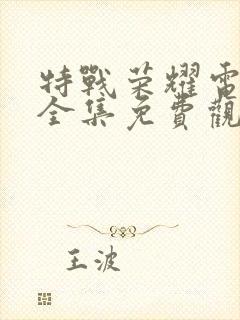 特戰荣耀電
全集免費觀
王波